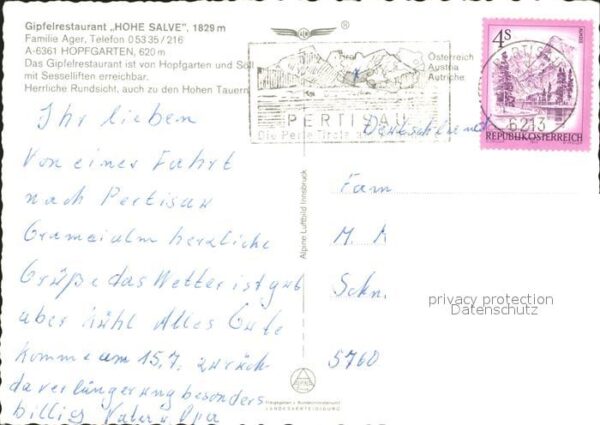 Gipfelrestaurant „HOHE SALVE", 1829 m
Familie Ager, Telefon 0 53 35 / 216
A-6361 HOPFGARTEN, 620 m
Das Gipfelrestaurant ist von Hopfgarten und Söll
mit Sesselliften erreichbar.
Herrliche Rundsicht, auch zu den Hohen Tauern
Ihr lieben
Von einer Fahrt
nach Pertisau
Grameialm herzliche
Grüße das Wetter ist gut
aber kühl Alles Gute
komme am 15.7. zurück
da verlängerung besonders
billig Vater u. Opa
Alpine Luftbild Innsbruck
LANDESVERTEIDIGUNG
®
Österreich
Austria
Autriche
PERTISAU
Die Perle Tirols
4S
PERTISAU
6213
REPUBLIK ÖSTERREICH
Deutschland
Fam
M. M
Schn.
5760
privacy protection
Datenschutz